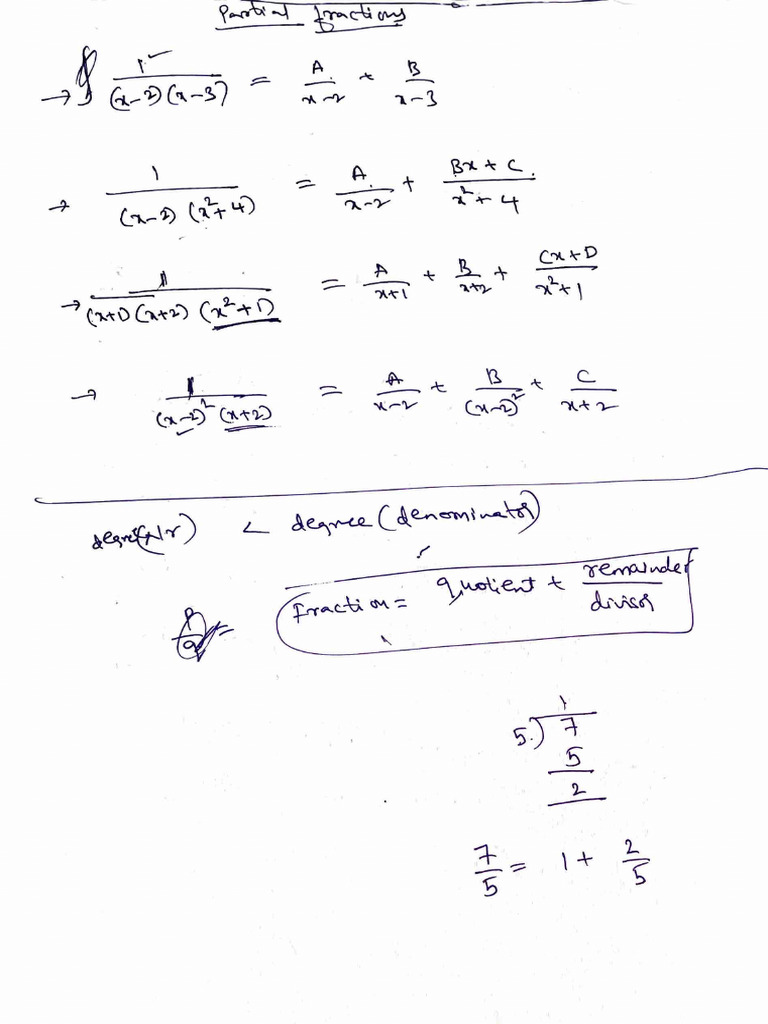 Partial fractions
→ 1/((x-2)(x-3)) = A/(x-2) + B/(x-3)
→ 1/((x-2)(x²+4)) = A/(x-2) + (Bx+C)/(x²+4)
→ 1/((x+1)(x+2)(x²+1)) = A/(x+1) + B/(x+2) + (Cx+D)/(x²+1)
→ 1/((x-2)²(x+2)) = A/(x-2) + B/(x-2)² + C/(x+2)
degree(Nr) < degree (denominator)
fraction = quotient + remainder/divisor
1
5) 7
5
2
7/5 = 1 + 2/5